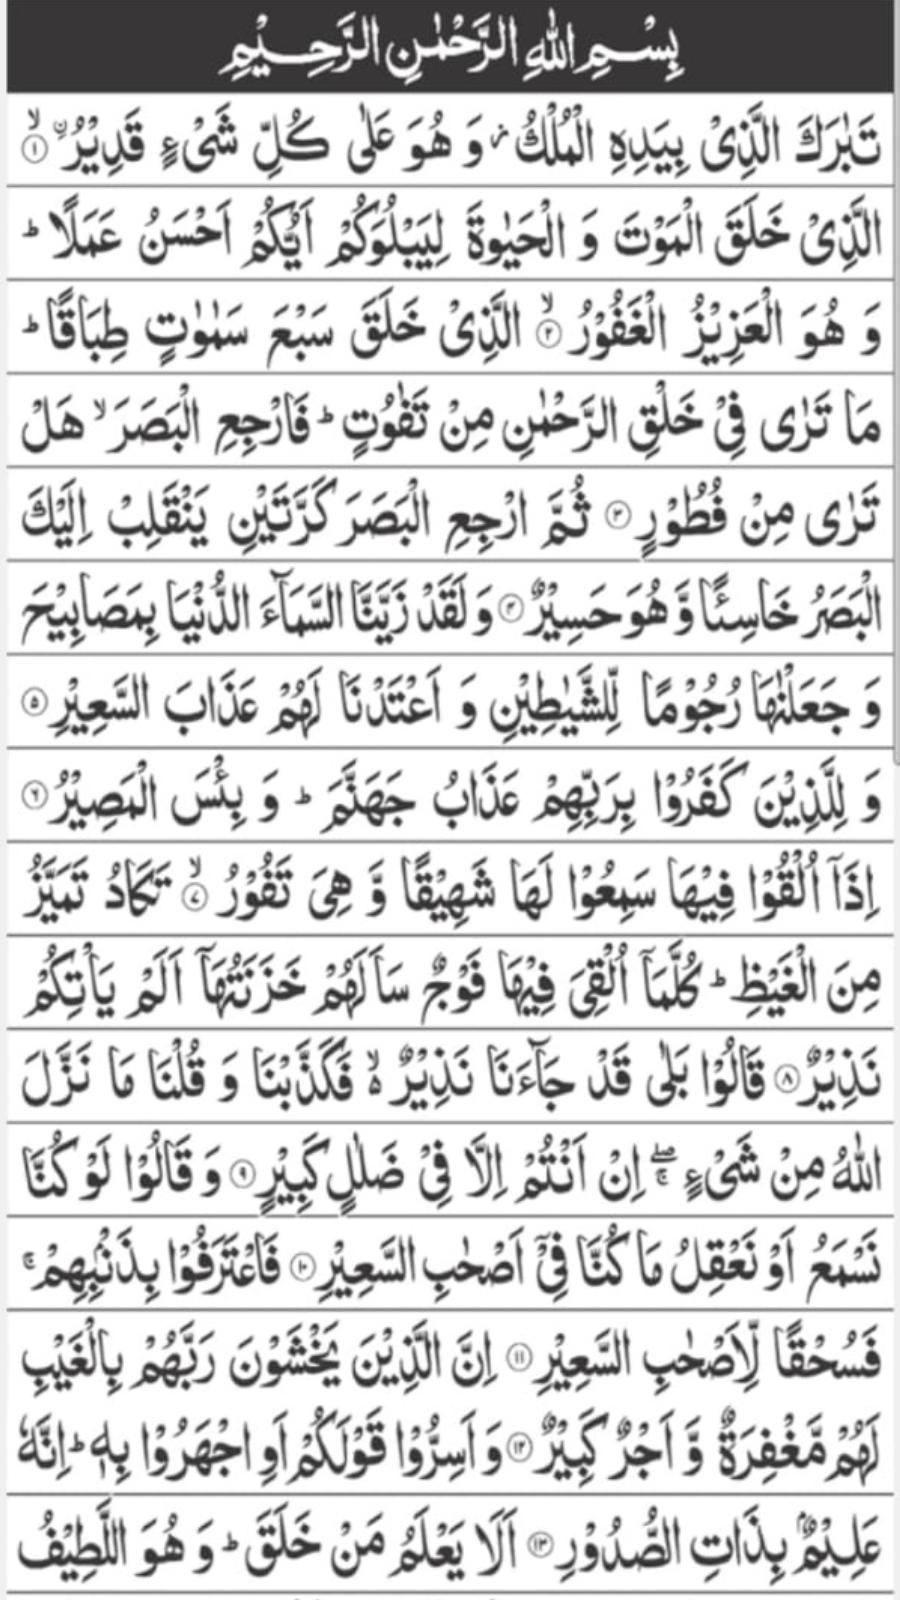 بِسْمِ اللّٰهِ الرَّحْمٰنِ الرَّحِيْمِ
تَبٰرَكَ الَّذِیْ بِيَدِهِ الْمُلْكُ ؗ وَ هُوَ عَلٰی كُلِّ شَیْءٍ قَدِيْرُ ۙ﴿۱﴾
الَّذِیْ خَلَقَ الْمَوْتَ وَ الْحَيٰوةَ لِيَبْلُوَكُمْ اَيُّكُمْ اَحْسَنُ عَمَلًا ؕ
وَ هُوَ الْعَزِيْزُ الْغَفُوْرُ ۙ﴿۲﴾ الَّذِیْ خَلَقَ سَبْعَ سَمٰوٰتٍ طِبَاقًا ؕ
مَا تَرٰی فِیْ خَلْقِ الرَّحْمٰنِ مِنْ تَفٰوُتٍ ؕ فَارْجِعِ الْبَصَرَ ۙ هَلْ
تَرٰی مِنْ فُطُوْرٍ ﴿۳﴾ ثُمَّ ارْجِعِ الْبَصَرَ كَرَّتَيْنِ يَنْقَلِبْ اِلَيْكَ
الْبَصَرُ خَاسِئًا وَّ هُوَ حَسِيْرٌ ﴿۴﴾ وَ لَقَدْ زَيَّنَّا السَّمَآءَ الدُّنْيَا بِمَصَابِيْحَ
وَ جَعَلْنٰهَا رُجُوْمًا لِّلشَّيٰطِيْنِ وَ اَعْتَدْنَا لَهُمْ عَذَابَ السَّعِيْرِ ﴿۵﴾
وَ لِلَّذِيْنَ كَفَرُوْا بِرَبِّهِمْ عَذَابُ جَهَنَّمَ ؕ وَ بِئْسَ الْمَصِيْرُ ﴿۶﴾
اِذَاۤ اُلْقُوْا فِيْهَا سَمِعُوْا لَهَا شَهِيْقًا وَّ هِیَ تَفُوْرُ ۙ﴿۷﴾ تَكَادُ تَمَيَّزُ
مِنَ الْغَيْظِ ؕ كُلَّمَاۤ اُلْقِیَ فِيْهَا فَوْجٌ سَاَلَهُمْ خَزَنَتُهَاۤ اَلَمْ يَاْتِكُمْ
نَذِيْرٌ ﴿۸﴾ قَالُوْا بَلٰی قَدْ جَآءَنَا نَذِيْرٌ ۬ۙ فَكَذَّبْنَا وَ قُلْنَا مَا نَزَّلَ
اللّٰهُ مِنْ شَیْءٍ ۚۖ اِنْ اَنْتُمْ اِلَّا فِیْ ضَلٰلٍ كَبِيْرٍ ﴿۹﴾ وَ قَالُوْا لَوْ كُنَّا
نَسْمَعُ اَوْ نَعْقِلُ مَا كُنَّا فِیْۤ اَصْحٰبِ السَّعِيْرِ ﴿۱۰﴾ فَاعْتَرَفُوْا بِذَنْۢبِهِمْ ۚ
فَسُحْقًا لِّاَصْحٰبِ السَّعِيْرِ ﴿۱۱﴾ اِنَّ الَّذِيْنَ يَخْشَوْنَ رَبَّهُمْ بِالْغَيْبِ
لَهُمْ مَّغْفِرَةٌ وَّ اَجْرٌ كَبِيْرٌ ﴿۱۲﴾ وَ اَسِرُّوْا قَوْلَكُمْ اَوِ اجْهَرُوْا بِهٖ ؕ اِنَّهٗ
عَلِيْمٌۢ بِذَاتِ الصُّدُوْرِ ﴿۱۳﴾ اَلَا يَعْلَمُ مَنْ خَلَقَ ؕ وَ هُوَ اللَّطِيْفُ